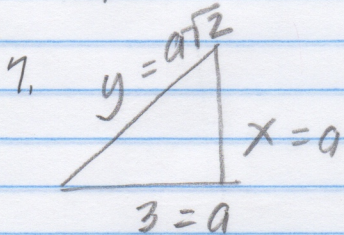 7.
y = a√2
x = a
3 = a